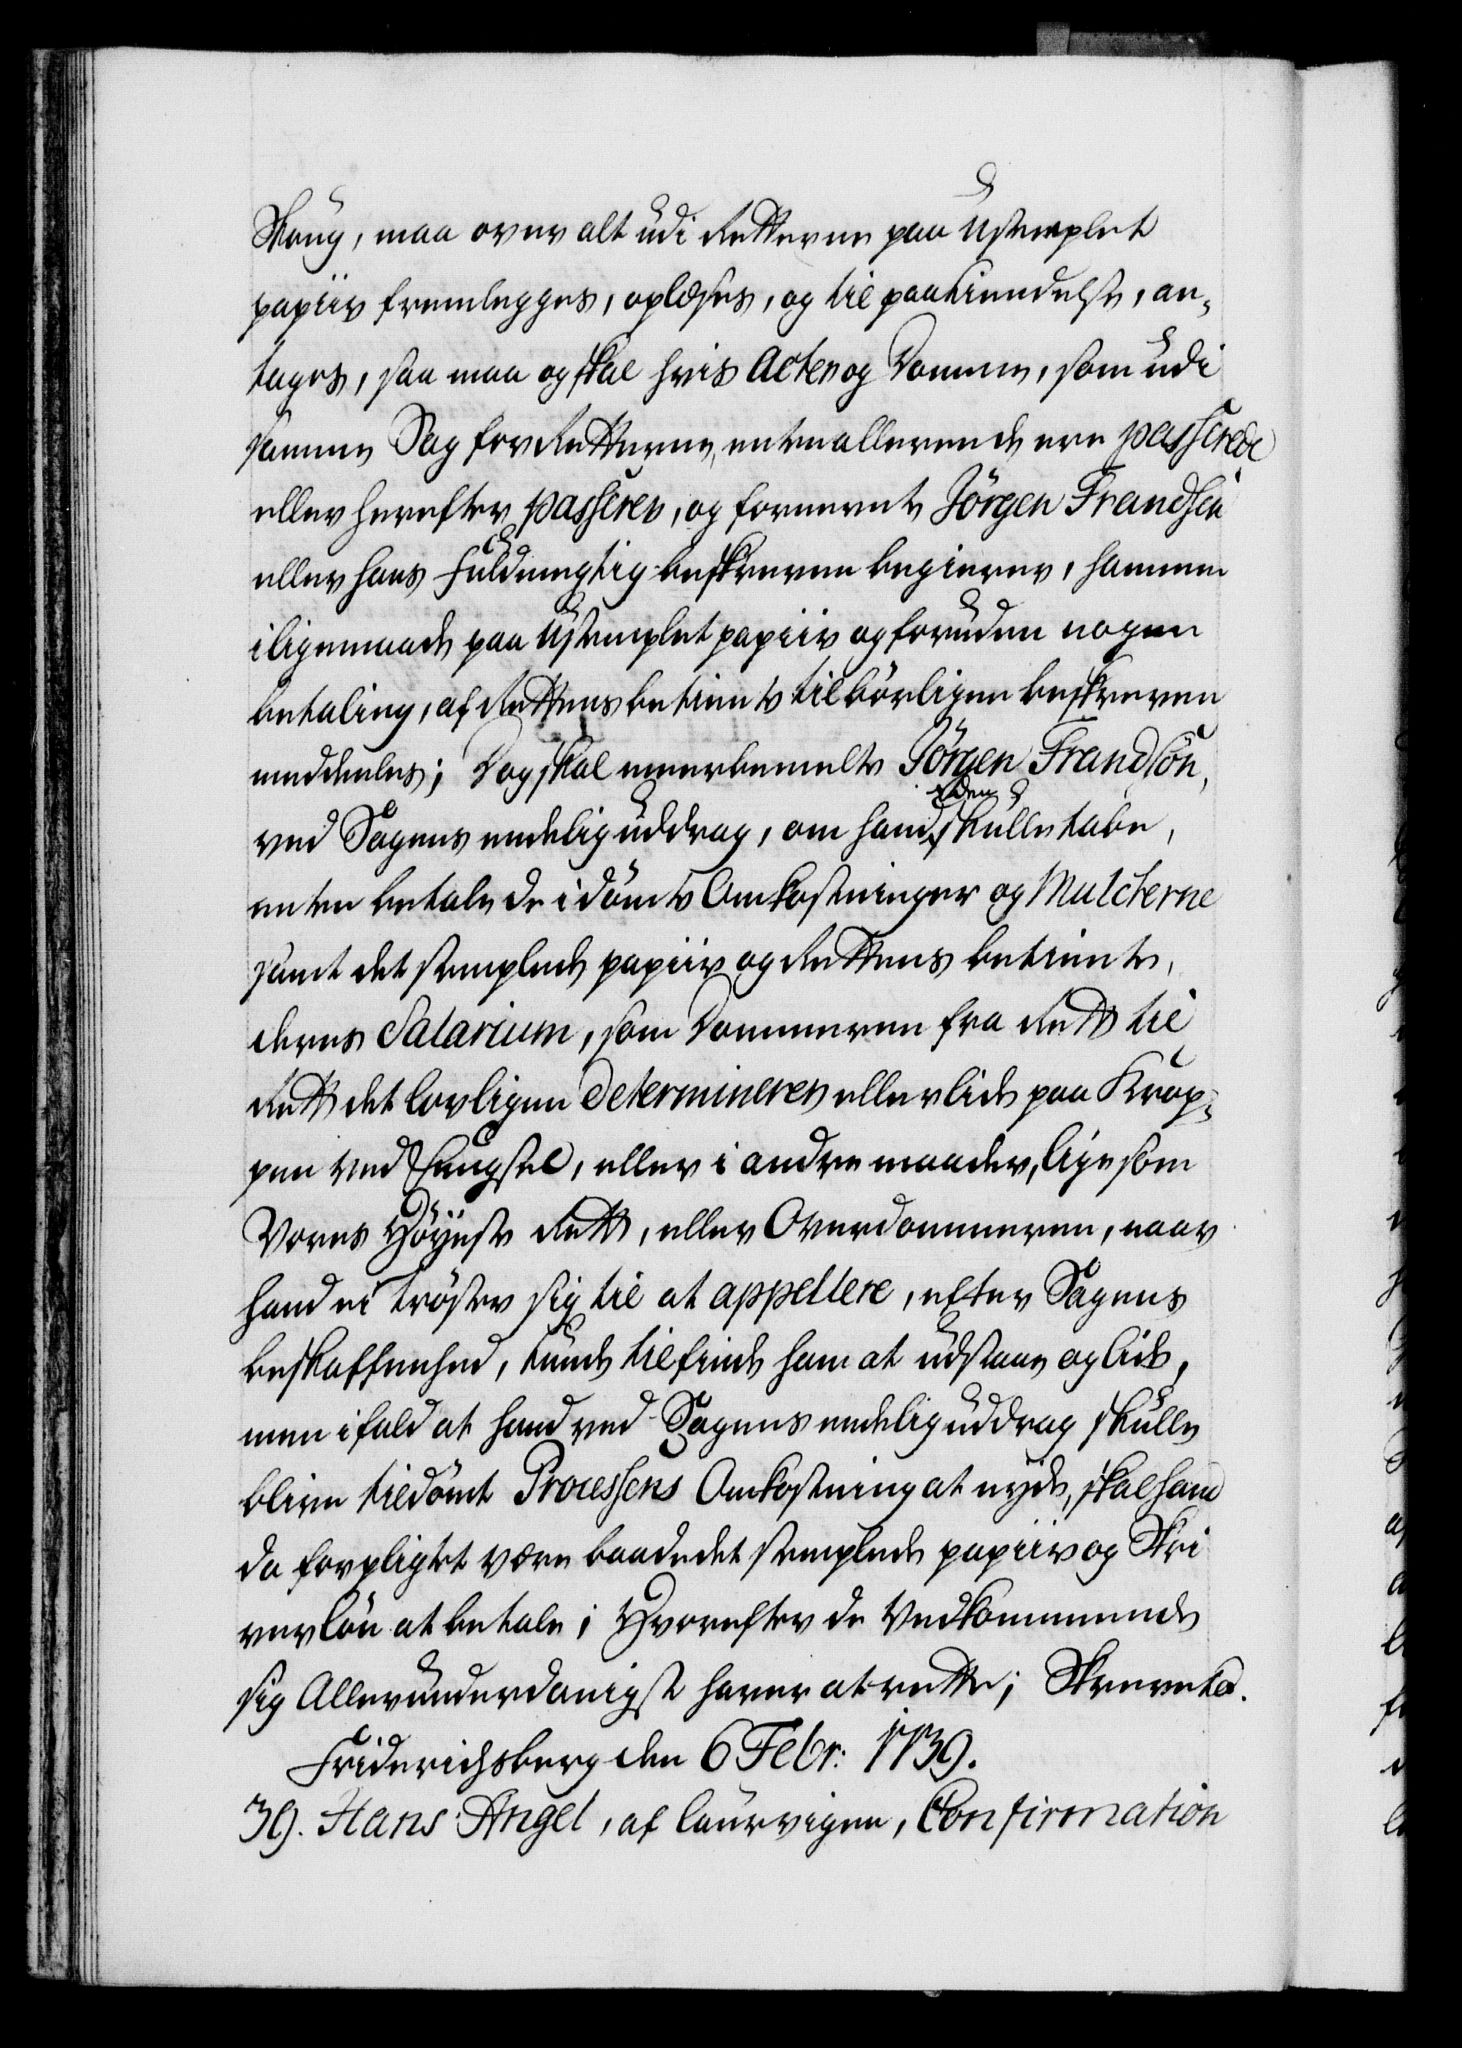 Skoug, maa over alt udi Retterne paa Ustemplet
papiir fremlegges, oplæses, og til paakiendelse, an-
tages, saa maa og skal hvis Acter og Domme, som udi
samme Sag for Retterne, enten allerende ere passerede
eller herefter passerer, og fornevnte Jörgen Frandsen
eller hans Fuldmegtig beskreven begierer, hannem
iligemaade paa Ustemplet papiir og foruden nogen
betaling, af Rettens betiente tilbörligen beskreven
meddeeles; Dog skal meerbemelte Jörgen Frandsön,
ved Sagens endelig uddrag, om hand den skulle tabe,
enten betale de idömte Omkostninger og Mulcterne
samt det stemplede papiir og Rettens betiente,
deres Salarium, som Dommeren fra Rett til
Rett det lovligen determinerer eller lide paa Krop-
pen ved Fængsel, eller i andre maader, lige som
Vores Höÿeste Rett, eller Overdommeren, naar
hand ei tröster sig til at appellere, efter Sagens
beskaffenhed, kunde tilfinde ham at udstaae og lide,
men ifald at hand ved Sagens endelig uddrag skulle
blive tildömt Processens Omkostning at nyde, skal hand
da forpligtet være baade det stemplede papiir og Skri
verlön at betale; Hvorefter de Vedkommende
sig Allerunderdanigst haver at rette; Skrevet &.
Friderichsberg den 6 Febr: 1739.
39. Hans Angel, af Laurvigen, Confirmation